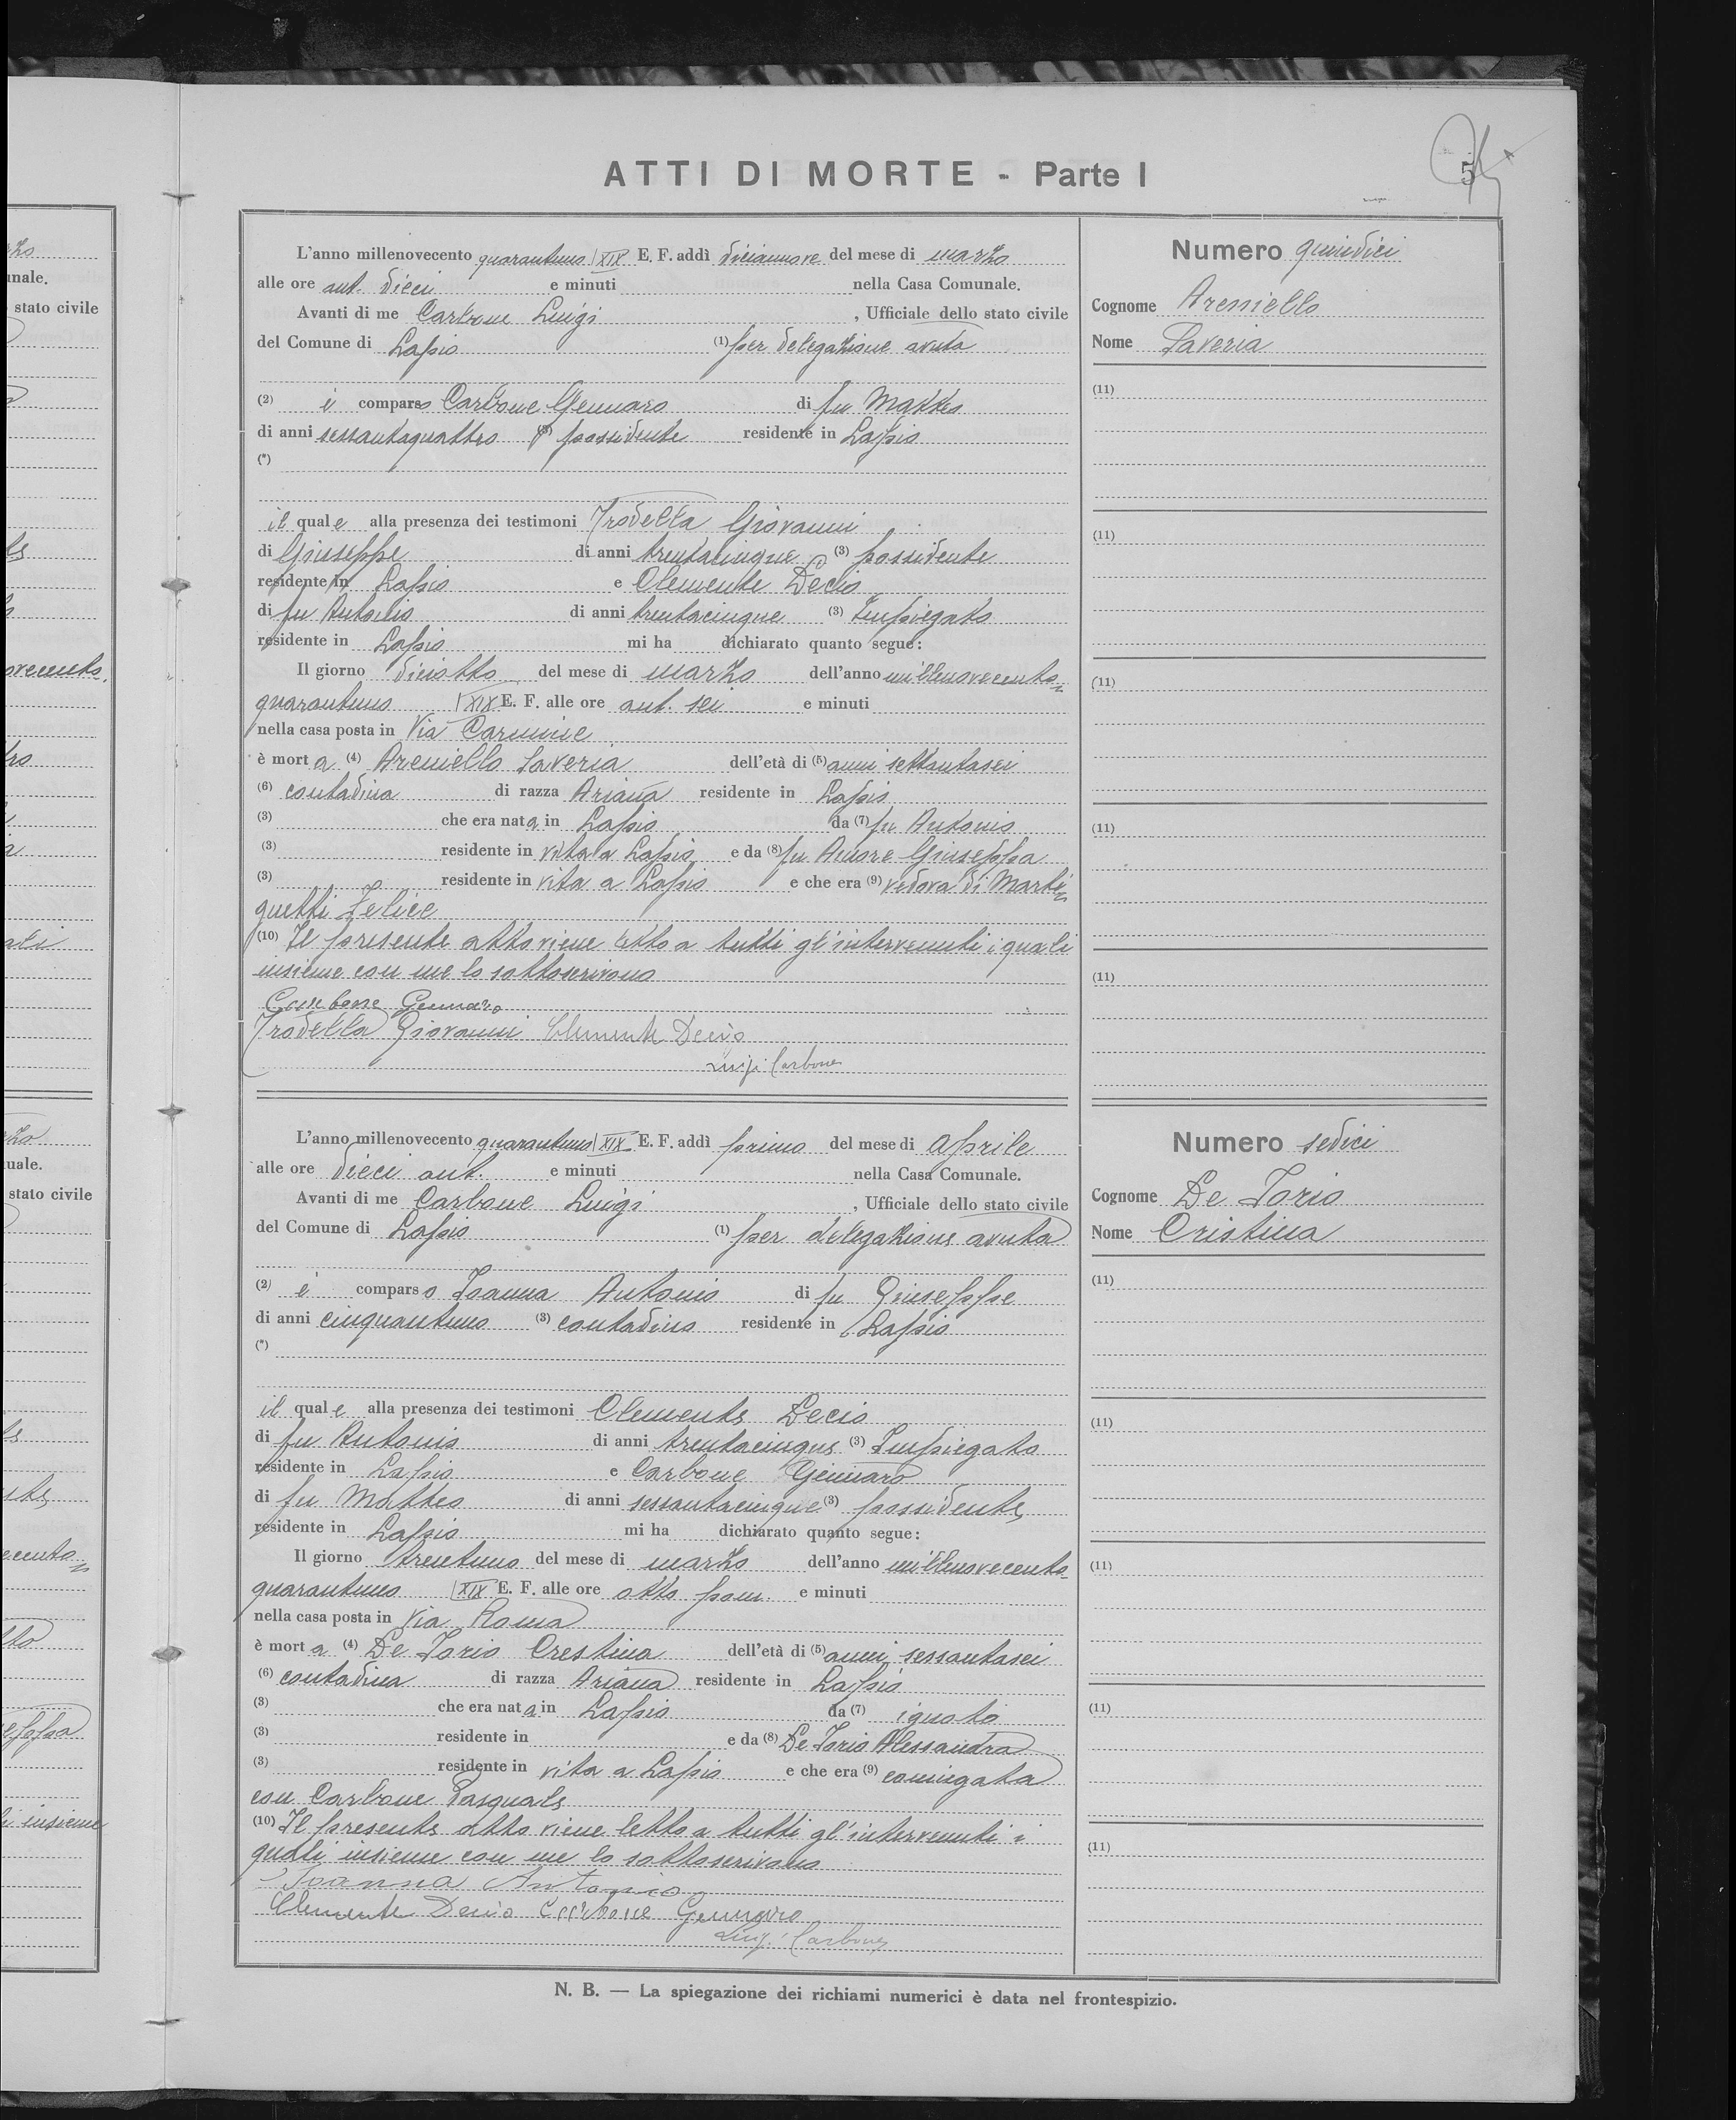 ATTI DI MORTE - Parte I
5
L'anno millenovecento quarantuno XIX E. F. addì diciannove del mese di marzo
alle ore ant. dieci e minuti nella Casa Comunale.
Avanti di me Carbone Luigi, Ufficiale dello stato civile
del Comune di Lapio (1) per delegazione avuta
(2) è comparso Carbone Gennaro di fu Matteo
di anni sessantaquattro (3) possidente residente in Lapio
(*)
il quale alla presenza dei testimoni Trodella Giovanni
di Giuseppe di anni trentacinque (3) possidente
residente in Lapio e Clemente Decio
di fu Antonio di anni trentacinque (3) Impiegato
residente in Lapio mi ha dichiarato quanto segue:
Il giorno diciotto del mese di marzo dell'anno millenovecento=
quarantuno XIX E. F. alle ore ant. sei e minuti
nella casa posta in Via Carmine
è morta (4) Areniello Saveria dell'età di (5) anni settantasei
(6) contadina di razza Ariana residente in Lapio
(3) che era nata in Lapio da (7) fu Antonio
(3) residente in vita a Lapio e da (8) fu Amore Giuseppa
(3) residente in vita a Lapio e che era (9) vedova di Marti=
guetti Felice
(10) Il presente atto viene letto a tutti gl'intervenuti i quali
insieme con me lo sottoscrivono
Carbone Gennaro
Trodella Giovanni Clemente Decio
Luigi Carbone
Numero quindici
Cognome Areniello
Nome Saveria
(11)
(11)
(11)
(11)
(11)
L'anno millenovecento quarantuno XIX E. F. addì primo del mese di Aprile
alle ore dieci ant. e minuti nella Casa Comunale.
Avanti di me Carbone Luigi, Ufficiale dello stato civile
del Comune di Lapio (1) per delegazione avuta
(2) è comparso Ioanna Antonio di fu Giuseppe
di anni cinquantuno (3) contadino residente in Lapio
(*)
il quale alla presenza dei testimoni Clemente Decio
di fu Antonio di anni trentacinque (3) Impiegato
residente in Lapio e Carbone Gennaro
di fu Matteo di anni sessantacinque (3) possidente
residente in Lapio mi ha dichiarato quanto segue:
Il giorno trentuno del mese di marzo dell'anno millenovecento=
quarantuno XIX E. F. alle ore otto pom. e minuti
nella casa posta in Via Roma
è morta (4) De Iorio Crestina dell'età di (5) anni sessantasei
(6) contadina di razza Ariana residente in Lapio
(3) che era nata in Lapio da (7) ignoto
(3) residente in e da (8) De Iorio Alessandra
(3) residente in vita a Lapio e che era (9) coniugata
con Carbone Pasquale
(10) Il presente atto viene letto a tutti gl'intervenuti i
quali insieme con me lo sottoscrivono
Ioanna Antonio
Clemente Decio Carbone Gennaro
Luigi Carbone
Numero sedici
Cognome De Iorio
Nome Cristina
(11)
(11)
(11)
(11)
(11)
N. B. — La spiegazione dei richiami numerici è data nel frontespizio.